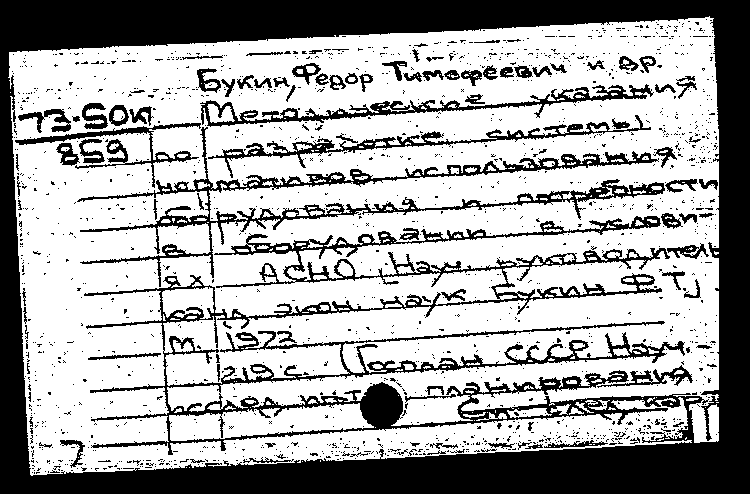 Букин, Федор Тимофеевич и др.
73-50к Методические указания
859 по разработке системы
нормативов использования
оборудования и потребности
в оборудовании в услови-
ях АСНО. [Науч. руководитель
канд. экон. наук Букин Ф.Т.]
М., 1973
219 с. (Госплан СССР. Науч.-
исслед. инт планирования
См. след. кар
7